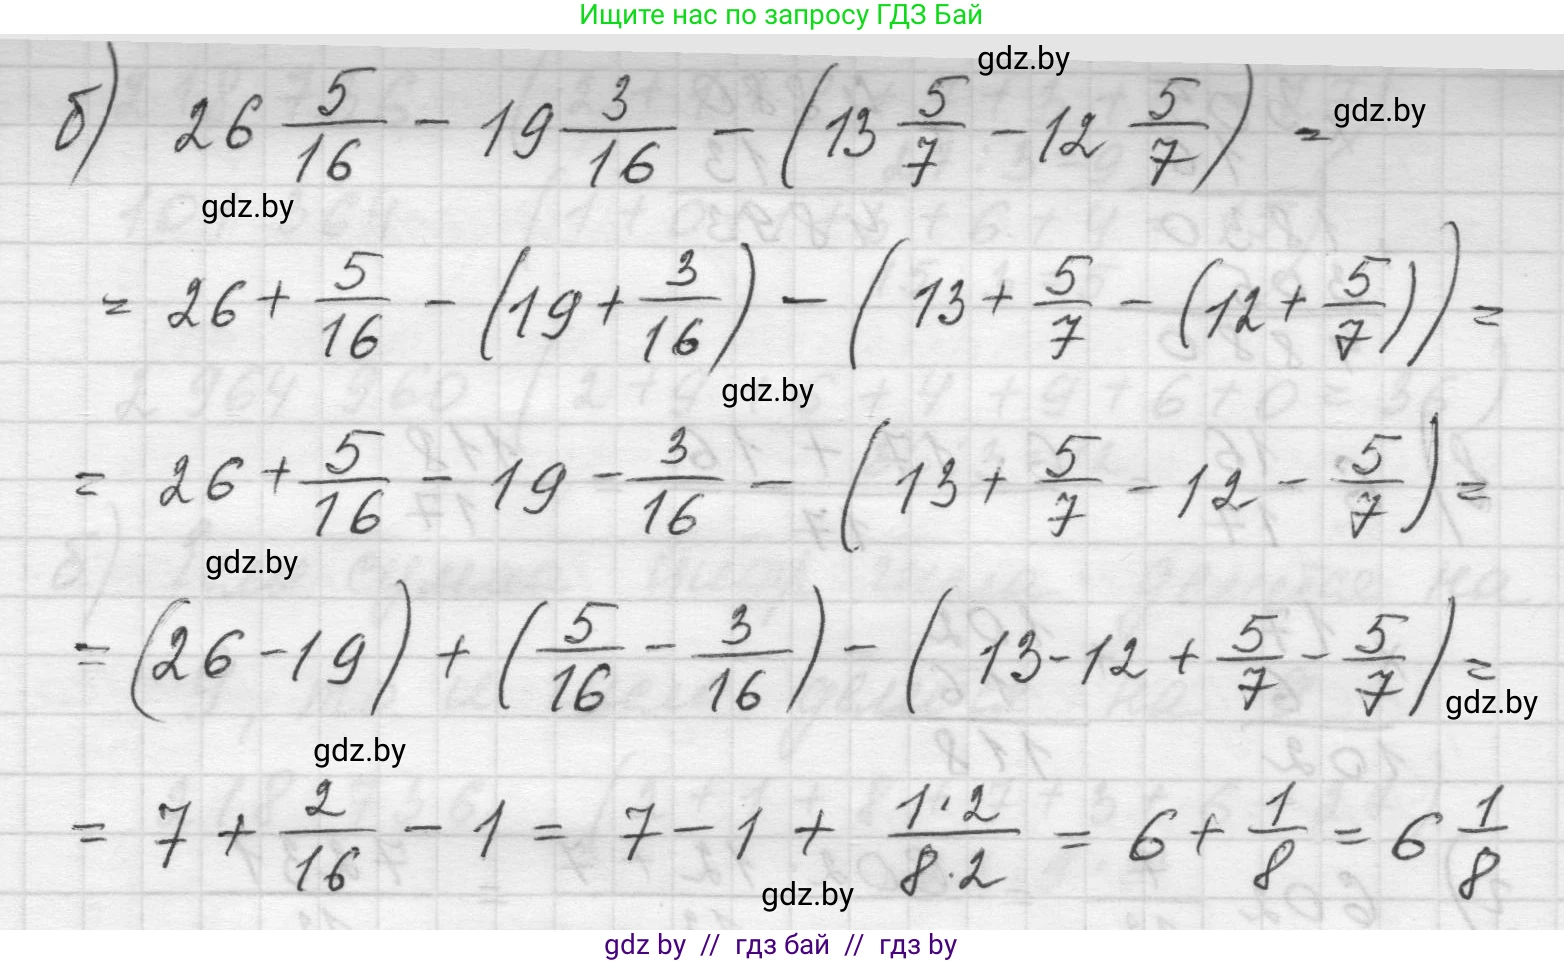 Ищите нас по запросу ГДЗ Бай
gdz.by
б) 26 5/16 - 19 3/16 - (13 5/7 - 12 5/7) =
gdz.by
gdz.by
= 26 + 5/16 - (19 + 3/16) - (13 + 5/7 - (12 + 5/7)) =
gdz.by
= 26 + 5/16 - 19 - 3/16 - (13 + 5/7 - 12 - 5/7) =
gdz.by
= (26 - 19) + (5/16 - 3/16) - (13 - 12 + 5/7 - 5/7) =
gdz.by
gdz.by
= 7 + 2/16 - 1 = 7 - 1 + 1·2/8·2 = 6 + 1/8 = 6 1/8
gdz.by
gdz by // гдз бай // гдз by